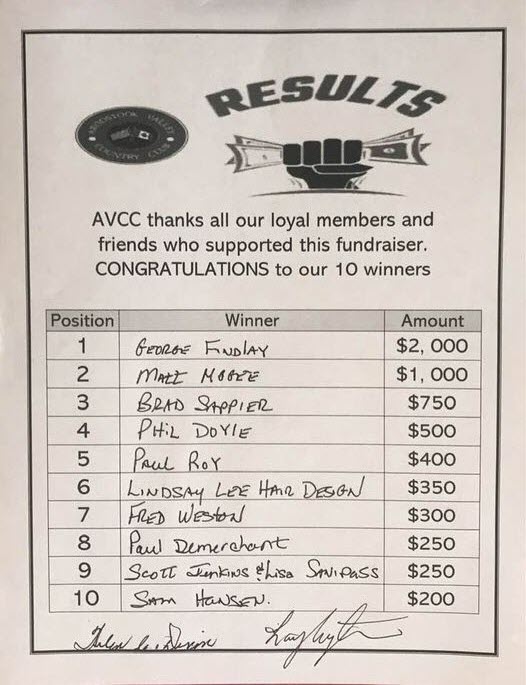 RESULTS
AROOSTOOK VALLEY
COUNTRY CLUB
AVCC thanks all our loyal members and
friends who supported this fundraiser.
CONGRATULATIONS to our 10 winners
Position Winner Amount
1 GEORGE FINDLAY $2, 000
2 MATT MCGEE $1, 000
3 BRAD SAPPIER $750
4 PHIL DOYLE $500
5 PAUL ROY $400
6 LINDSAY LEE HAIR DESIGN $350
7 FRED WESTON $300
8 Paul Demerchant $250
9 SCOTT JENKINS & LISA SANIPASS $250
10 SAM HANSEN. $200